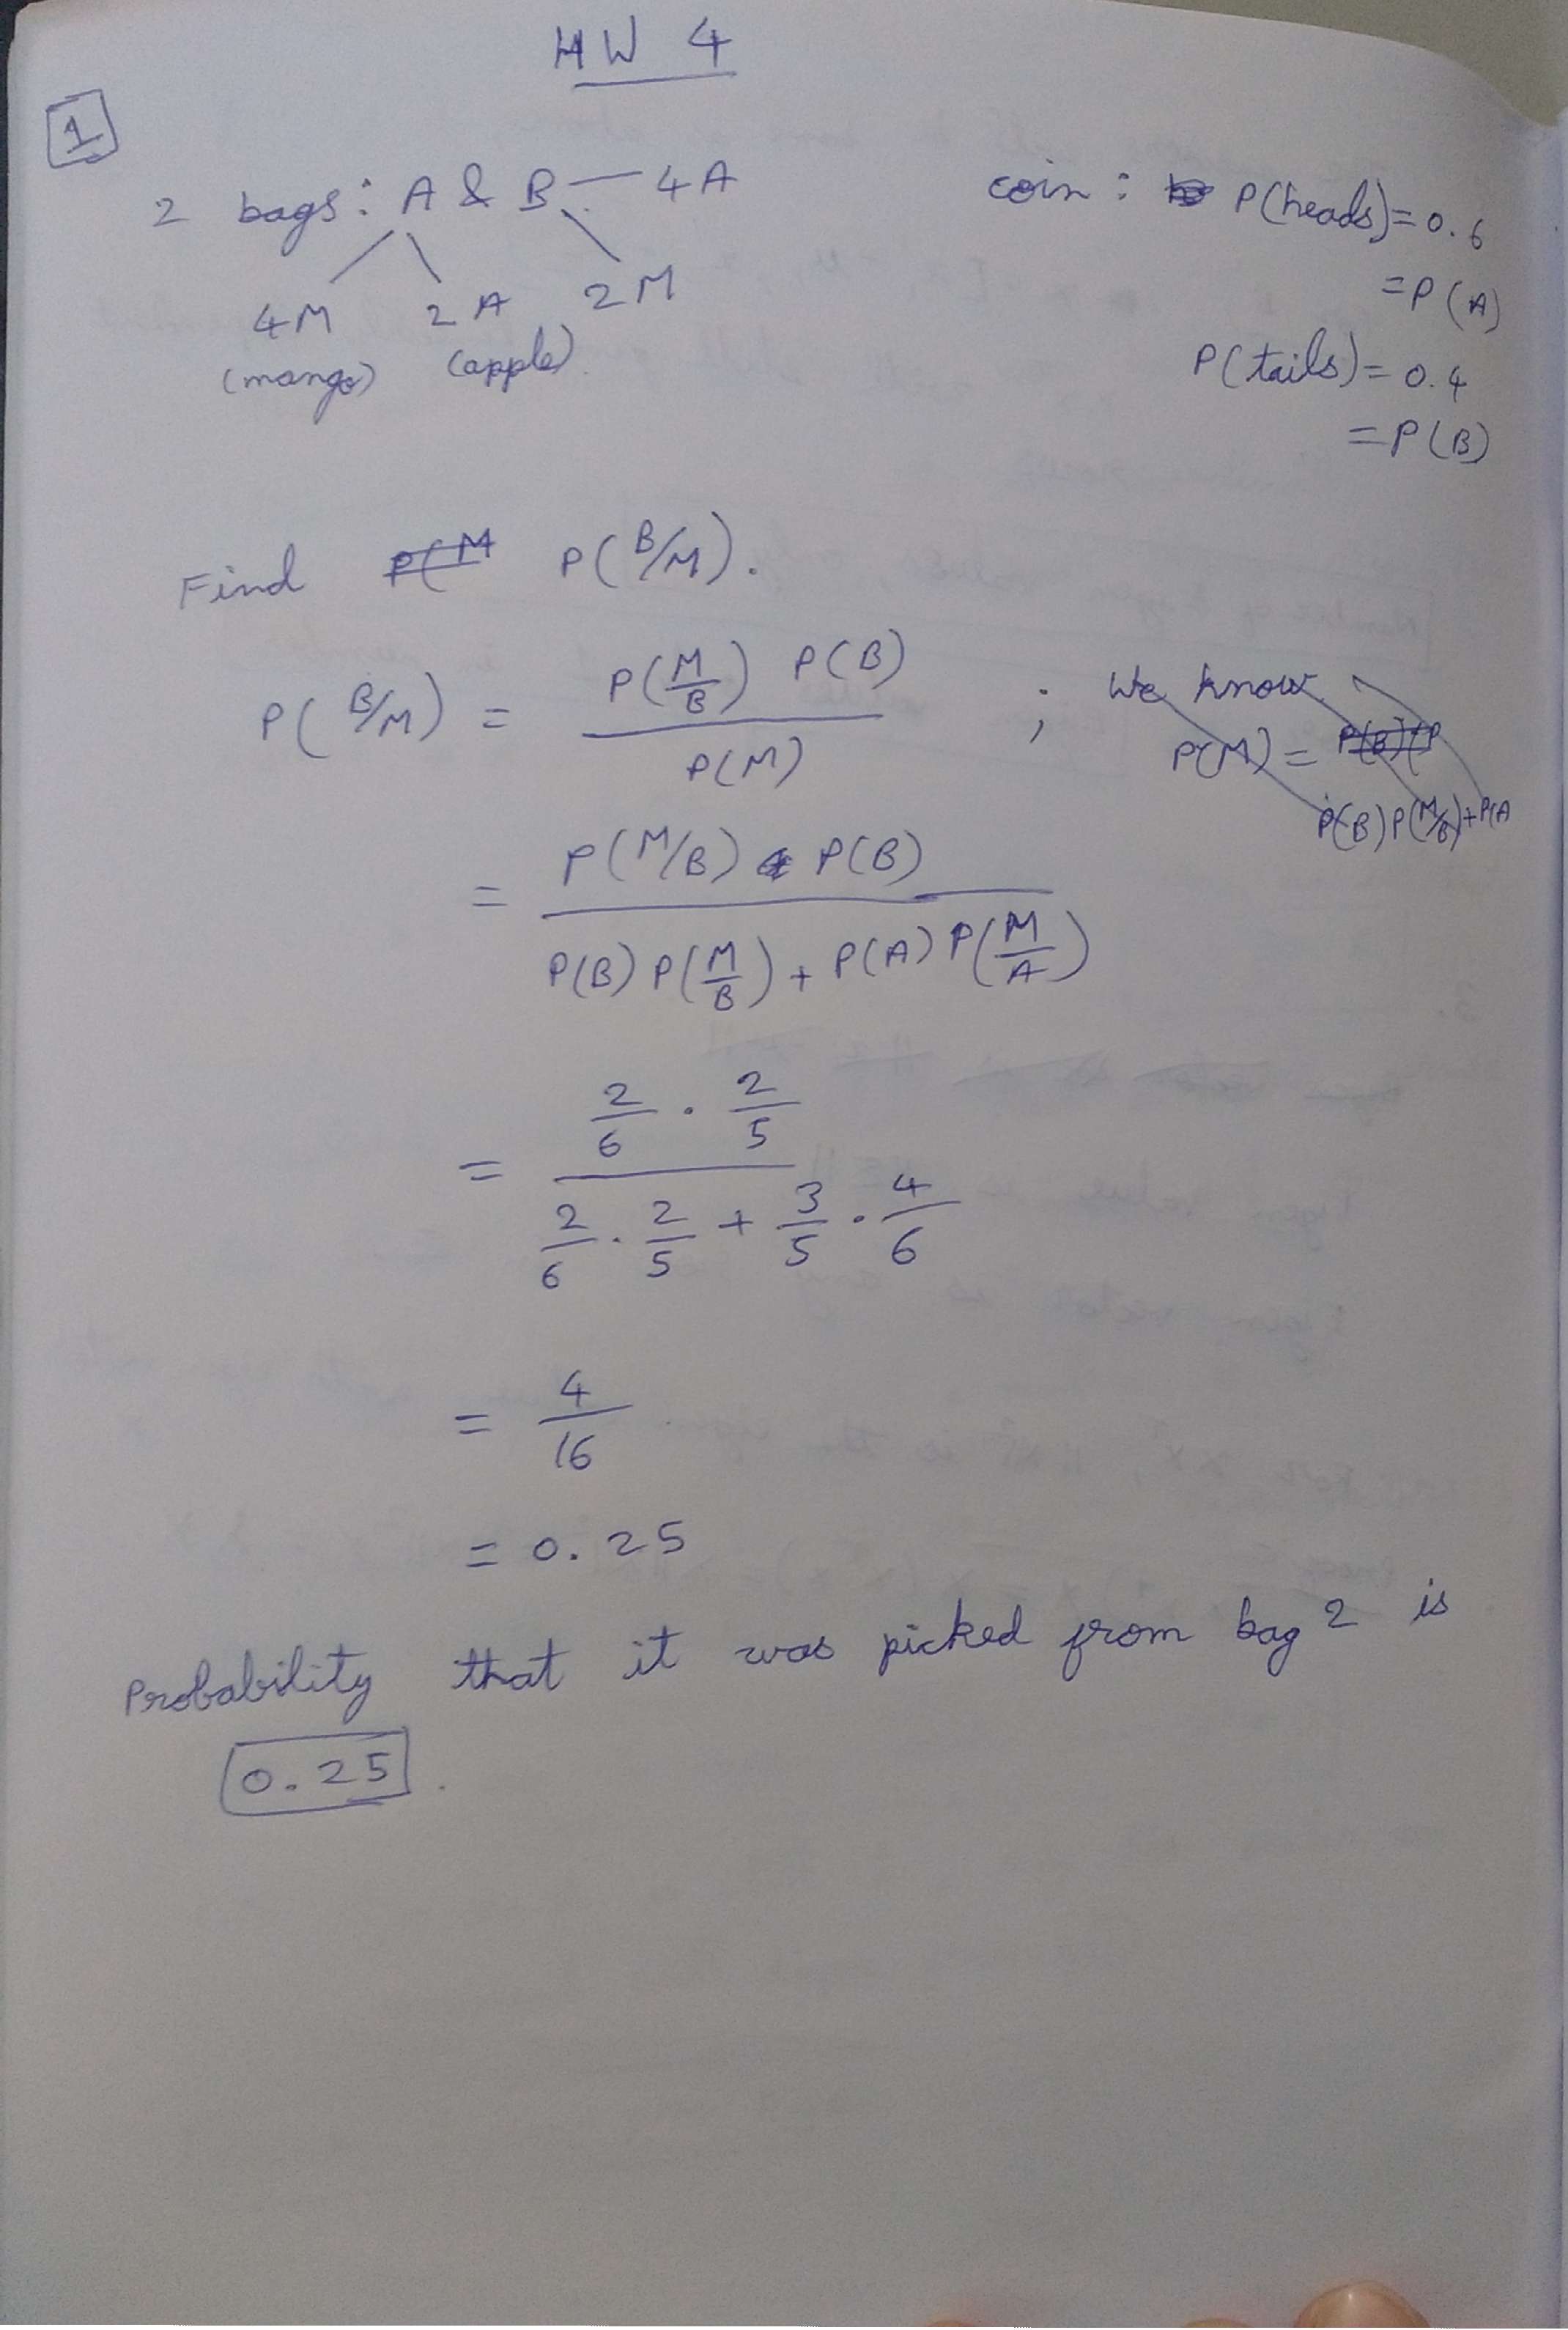 HW 4
1
2 bags: A & B — 4A
4M 2A 2M
(mango) (apple)
coin: P(heads)=0.6
=P(A)
P(tails)=0.4
=P(B)
Find P(M P(B/M).
P(B/M) = P(M/B) P(B) / P(M) ; We know
P(M) = P(B)(P
P(B)P(M/B)+P(A
= P(M/B) P(B) / P(B)P(M/B) + P(A)P(M/A)
= 2/6 . 2/5 / 2/6 . 2/5 + 3/5 . 4/6
= 4/16
= 0.25
Probability that it was picked from bag 2 is
0.25.